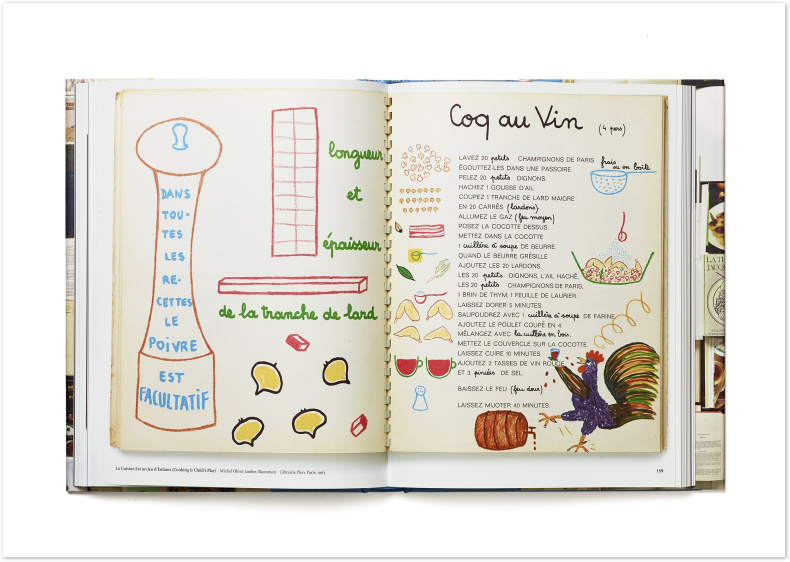 DANS
TOU-
TES
LES
RE-
CETTES
LE
POIVRE
EST
FACULTATIF
longueur
et
épaisseur
de la tranche de lard
La Cuisine Est un Jeu d'Enfants (Cooking Is Child's Play) Michel Oliver (author, illustrator) Librairie Plon, Paris, 1963
Coq au Vin (4 pers)
LAVEZ 20 petits CHAMPIGNONS DE PARIS frais ou en boîte
ÉGOUTTEZ-LES DANS UNE PASSOIRE.
PELEZ 20 petits OIGNONS.
HACHEZ 1 GOUSSE D'AIL
COUPEZ 1 TRANCHE DE LARD MAIGRE
EN 20 CARRÉS (lardons).
ALLUMEZ LE GAZ (feu moyen)
POSEZ LA COCOTTE DESSUS.
METTEZ DANS LA COCOTTE
1 cuillère à soupe DE BEURRE
QUAND LE BEURRE GRÉSILLE
AJOUTEZ LES 20 LARDONS,
LES 20 petits OIGNONS, L'AIL HACHÉ,
LES 20 petits CHAMPIGNONS DE PARIS,
1 BRIN DE THYM, 1 FEUILLE DE LAURIER.
LAISSEZ DORER 5 MINUTES.
SAUPOUDREZ AVEC 1 cuillère à soupe DE FARINE
AJOUTEZ LE POULET COUPÉ EN 4.
MÉLANGEZ AVEC la cuillère en bois.
METTEZ LE COUVERCLE SUR LA COCOTTE.
LAISSEZ CUIRE 10 MINUTES.
AJOUTEZ 2 TASSES DE VIN ROUGE
ET 3 pincées DE SEL.
BAISSEZ LE FEU (feu doux)
LAISSEZ MIJOTER 40 MINUTES.
199